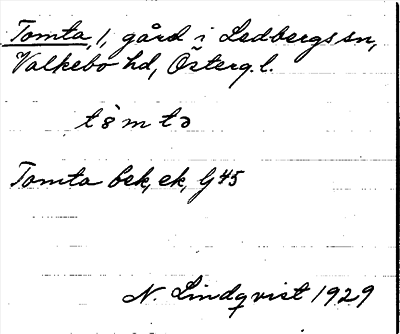 Tomta, 1, gård i Ledbergs sn,
Valkebo hd, Österg. l.
tòmtə
Tomta bek, ek, G 45
N. Lindqvist 1929